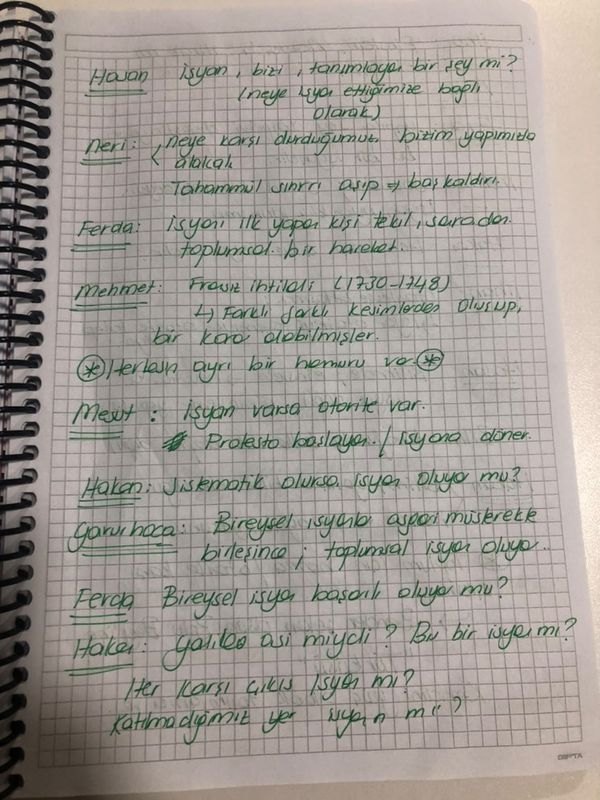 Hasan isyan, bizi, tanımlayan bir şey mi?
(neye isyan ettiğimize bağlı
olarak)
Neri: neye karşı durduğumuz, bizim yapımızla
alakalı
Tahammül sınırı aşıp → başkaldırı.
Ferda: isyanı ilk yapan kişi tekil, sonradan
toplumsal bir hareket.
Mehmet: Fransız ihtilali (1730-1748)
↳ Farklı farklı kesimlerden oluşup,
bir kara olabilmişler.
* Herkesin ayrı bir hamuru var *
Mesut: isyan varsa otorite var.
Protesto başlayan / isyana döner.
Hakan: Sistematik olursa isyan oluyo mu?
hoca: Bireysel isyanlar asgari müşterekte
birleşince; toplumsal isyan oluyor..
Ferda Bireysel isyan başarılı oluyo mu?
Hakan: Galileo asi miydi? Bu bir isyan mı?
Her karşı çıkış isyan mı?
Katılmadığımız yer isyan mı?